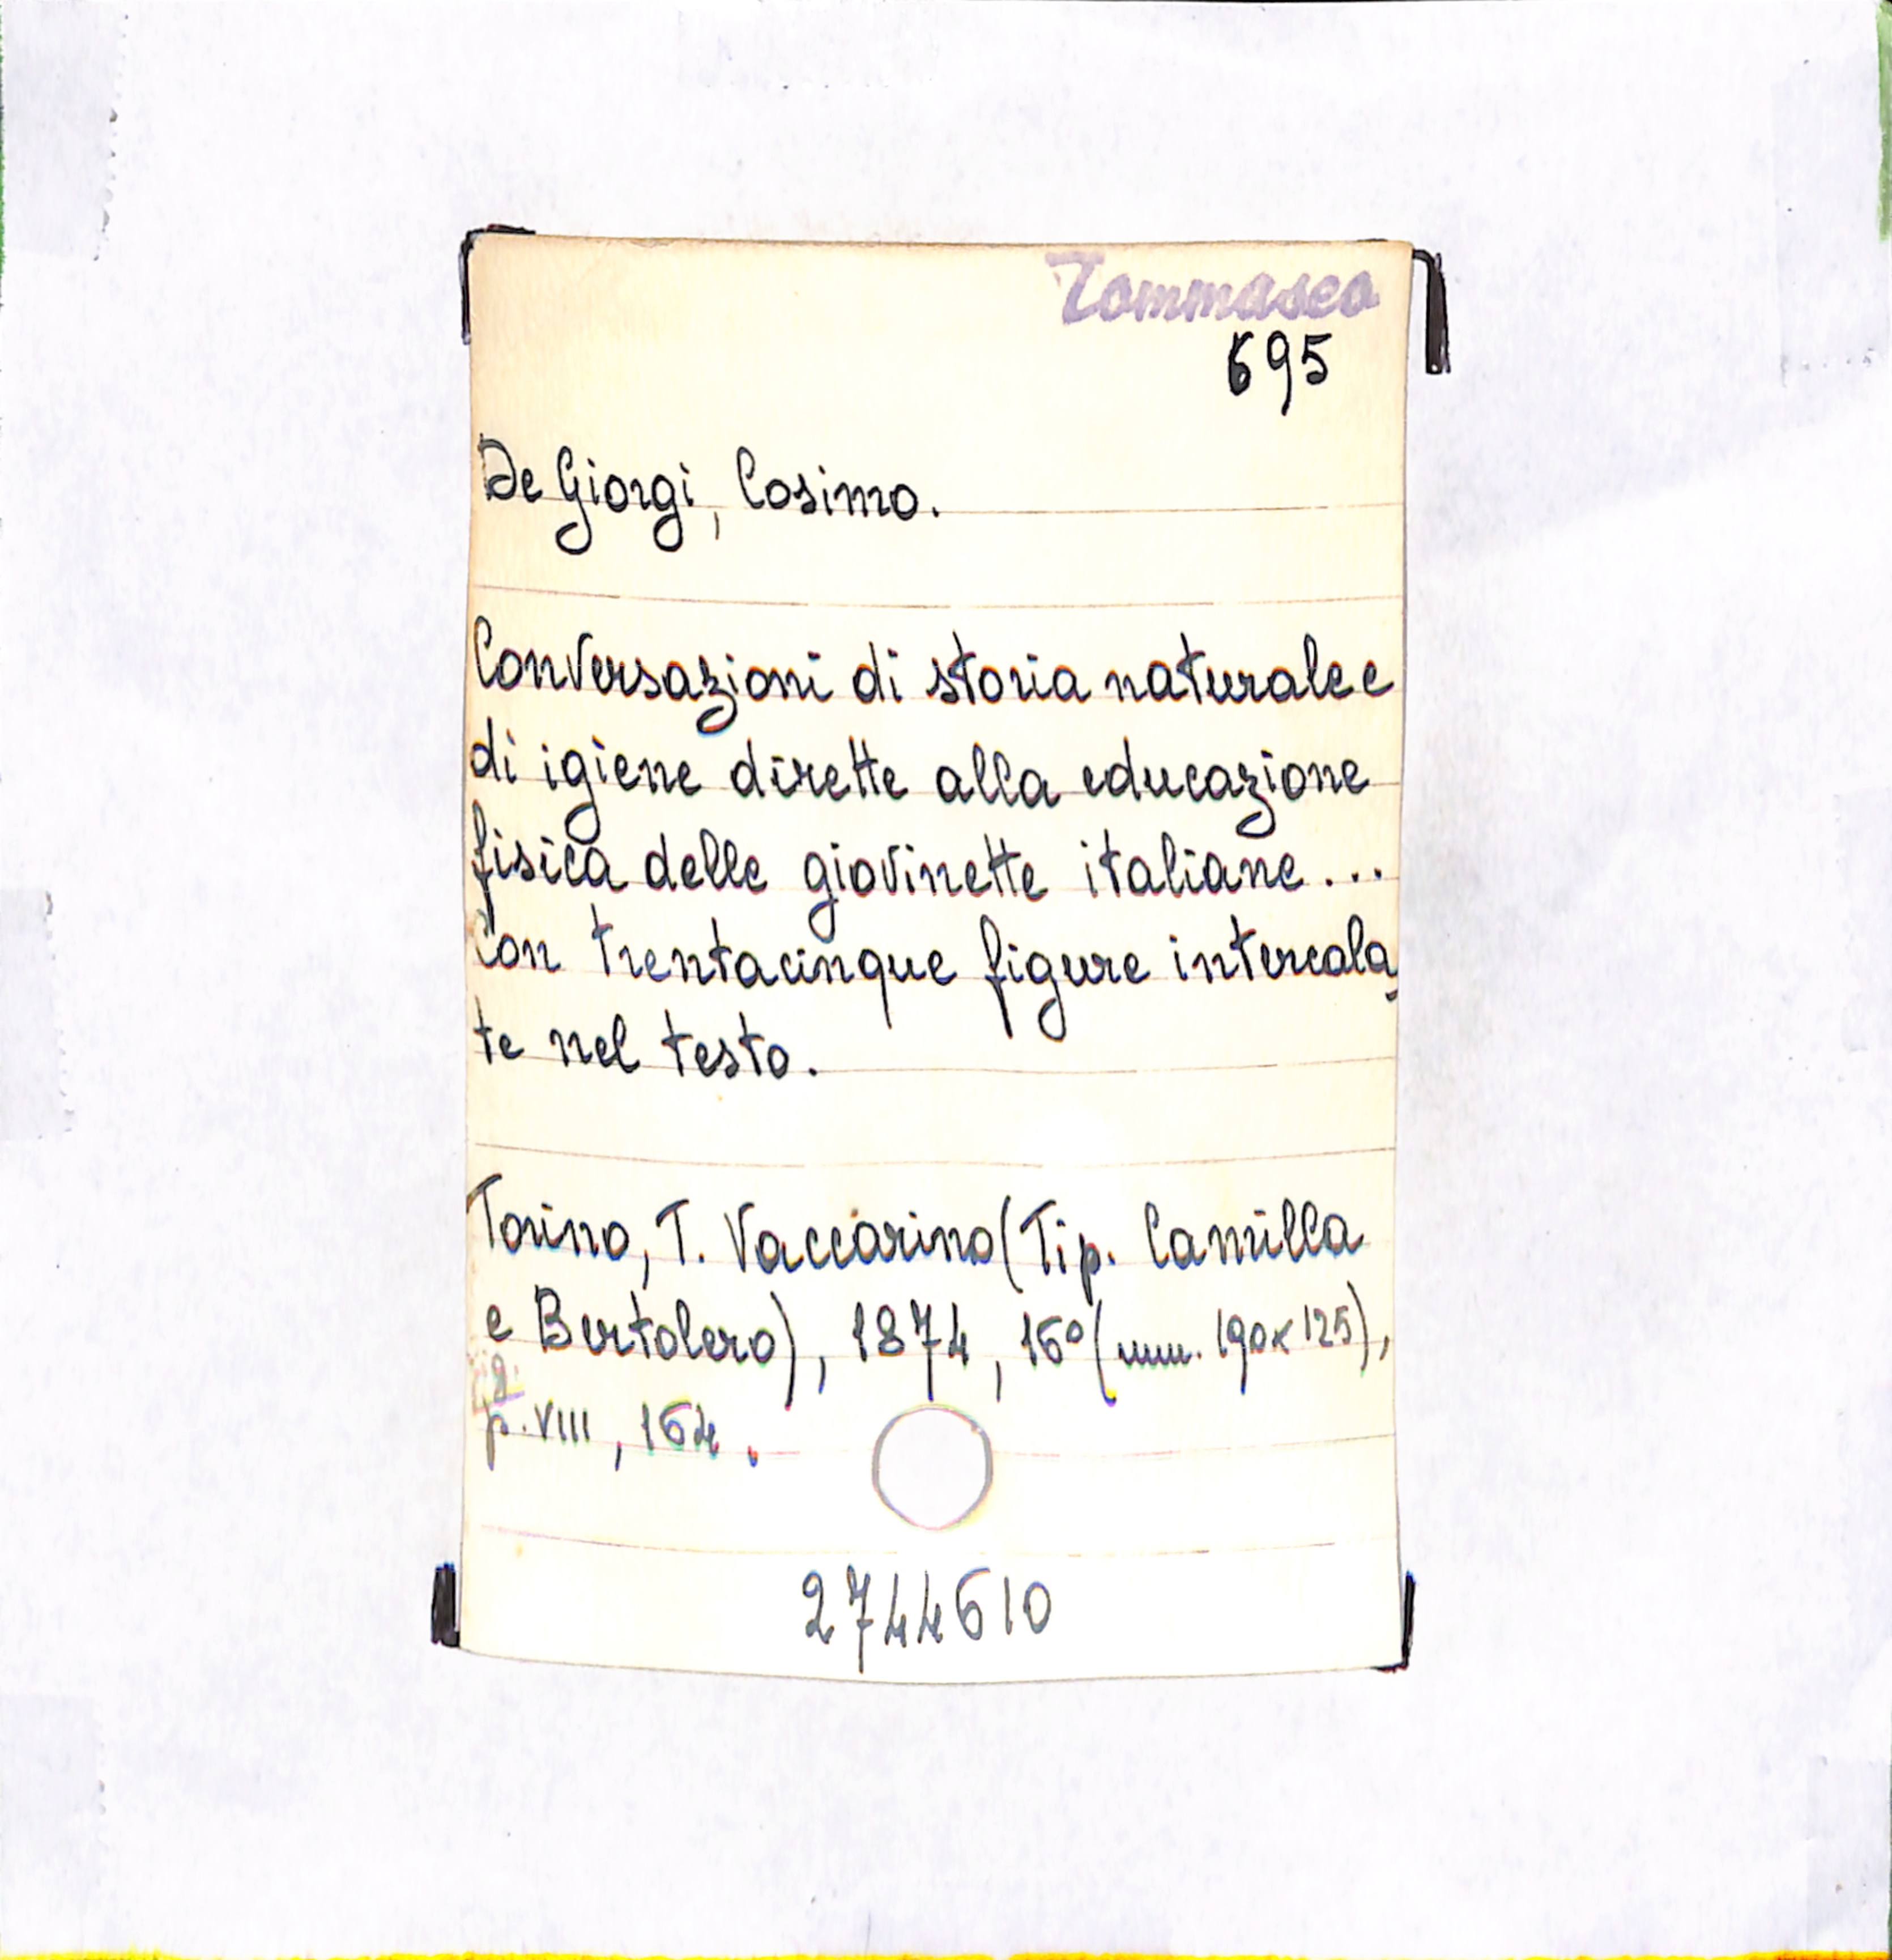 Tommaseo
695
De Giorgi, Cosimo.
Conversazioni di storia naturale e
di igiene dirette alla educazione
fisica delle giovinette italiane...
Con trentacinque figure intercala-
te nel testo.
Torino, T. Vaccarino (Tip. Camilla
e Bertolero), 1874, 16° (mm. 190x125),
p. VIII, 164.
2744610